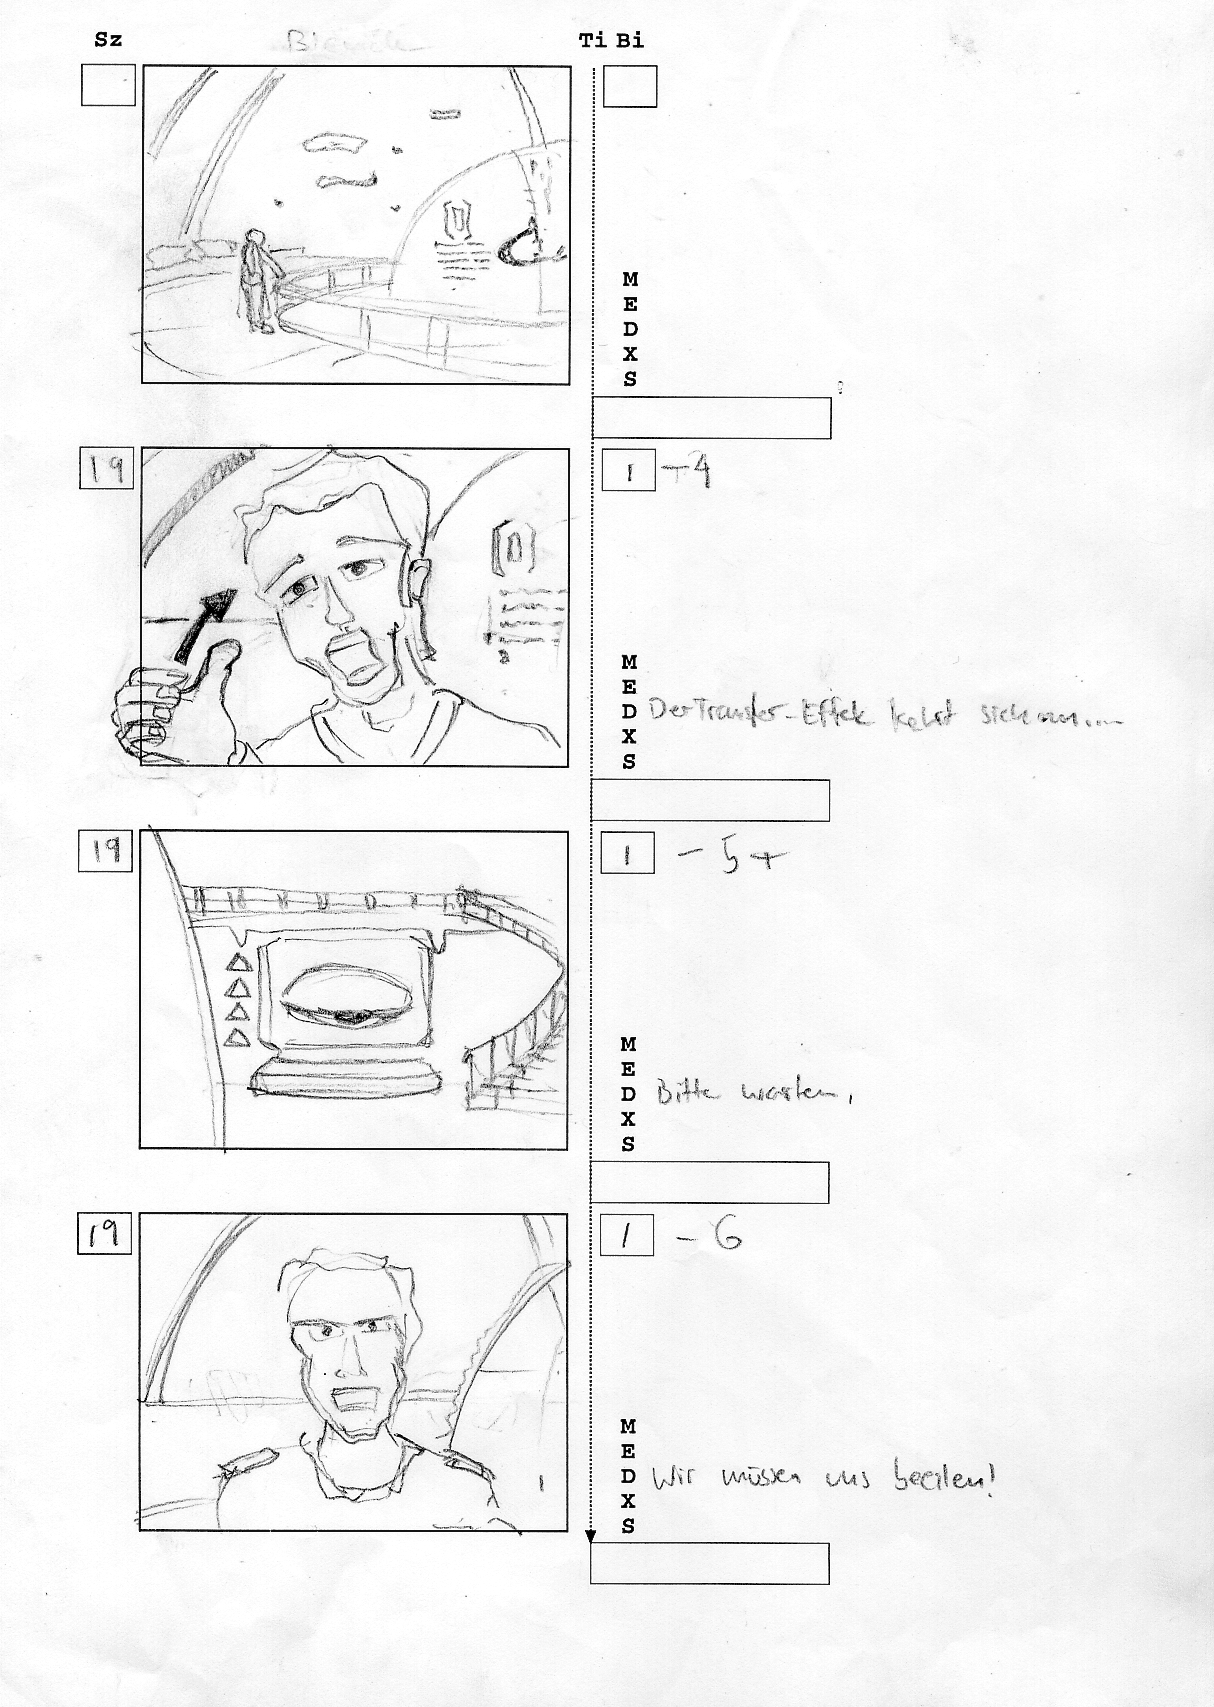 Sz Ti Bi
M
E
D
X
S
19 1 -4
M
E
D Der Transfer-Effek kehrt sich um....
X
S
19 1 - 5 +
M
E
D Bitte warten,
X
S
19 1 - 6
M
E
D Wir müssen uns beeilen!
X
S